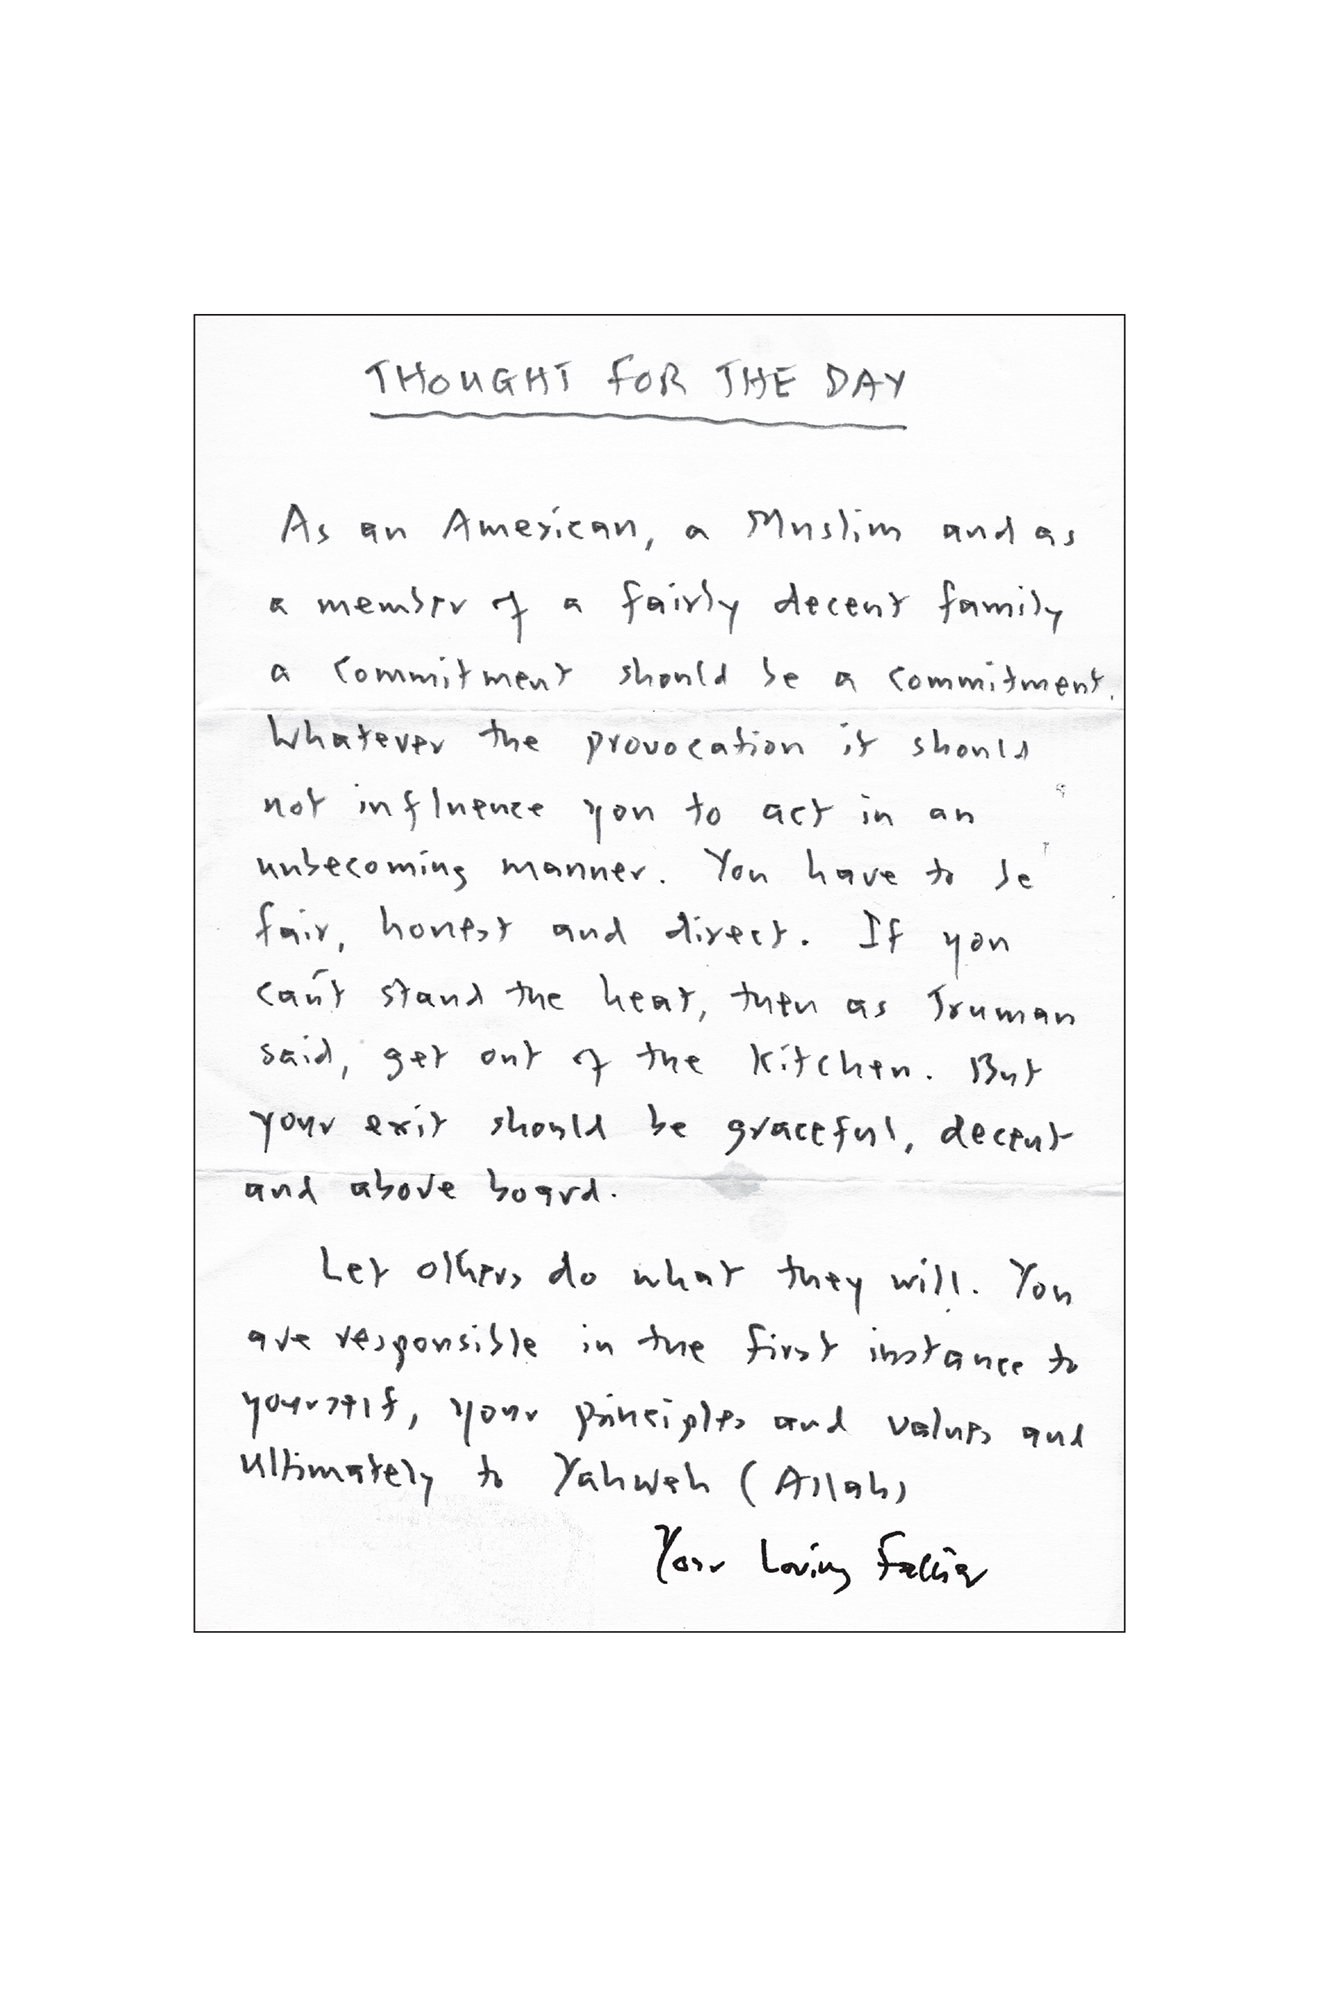 THOUGHT FOR THE DAY
As an American, a Muslim and as
a member of a fairly decent family
a commitment should be a commitment.
Whatever the provocation it should
not influence you to act in an
unbecoming manner. You have to be
fair, honest and direct. If you
can't stand the heat, then as Truman
said, get out of the kitchen. But
your exit should be graceful, decent
and above board.
Let others do what they will. You
are responsible in the first instance to
yourself, your principles and values and
ultimately to Yahweh (Allah)
Your Loving Father